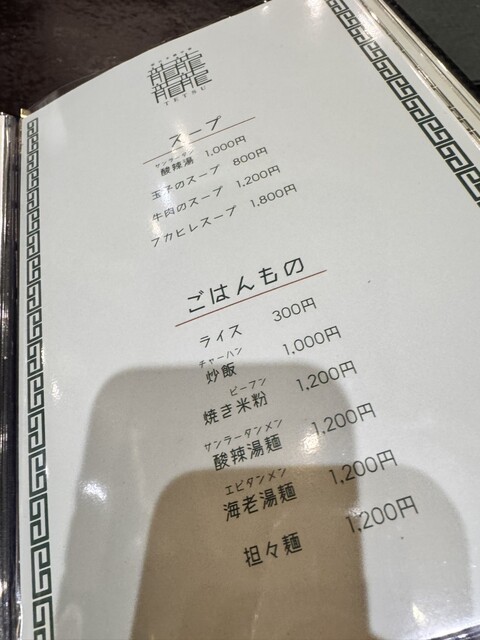 TETSU
スープ
サンラータン
酸辣湯 1,000円
玉子のスープ 800円
牛肉のスープ 1,200円
フカヒレスープ 1,800円
ごはんもの
ライス 300円
チャーハン
炒飯 1,000円
ビーフン
焼き米粉 1,200円
サンラータンメン
酸辣湯麺 1,200円
エビタンメン
海老湯麺 1,200円
担々麺 1,200円